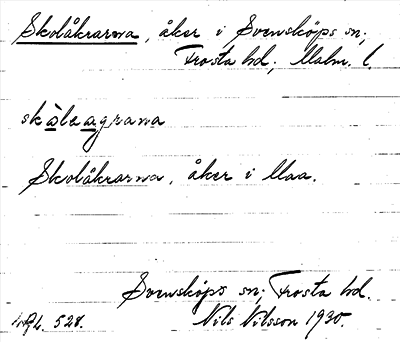 Skolåkrarna, åker i Svensköps sn;
Frosta hd, Malm. l.
skòlaagrana
Skolåkrarna, åker i Maa.
Svensköps sn; Frosta hd.
528. Nils Nilsson 1930.